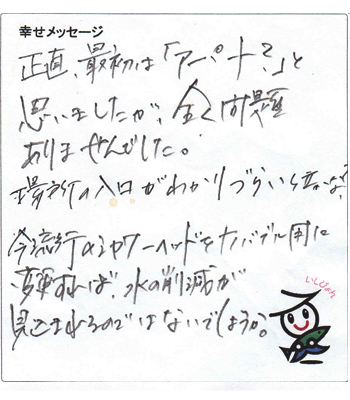 幸せメッセージ
正直、最初は「アパート?」と
思いましたが、全く問題
ありませんでした。
場所の入口がわかりづらい位かな?
今流行のシャワーヘッドをナノバブル用に
変更すれば、水の削減が
見込まれるのではないでしょうか。